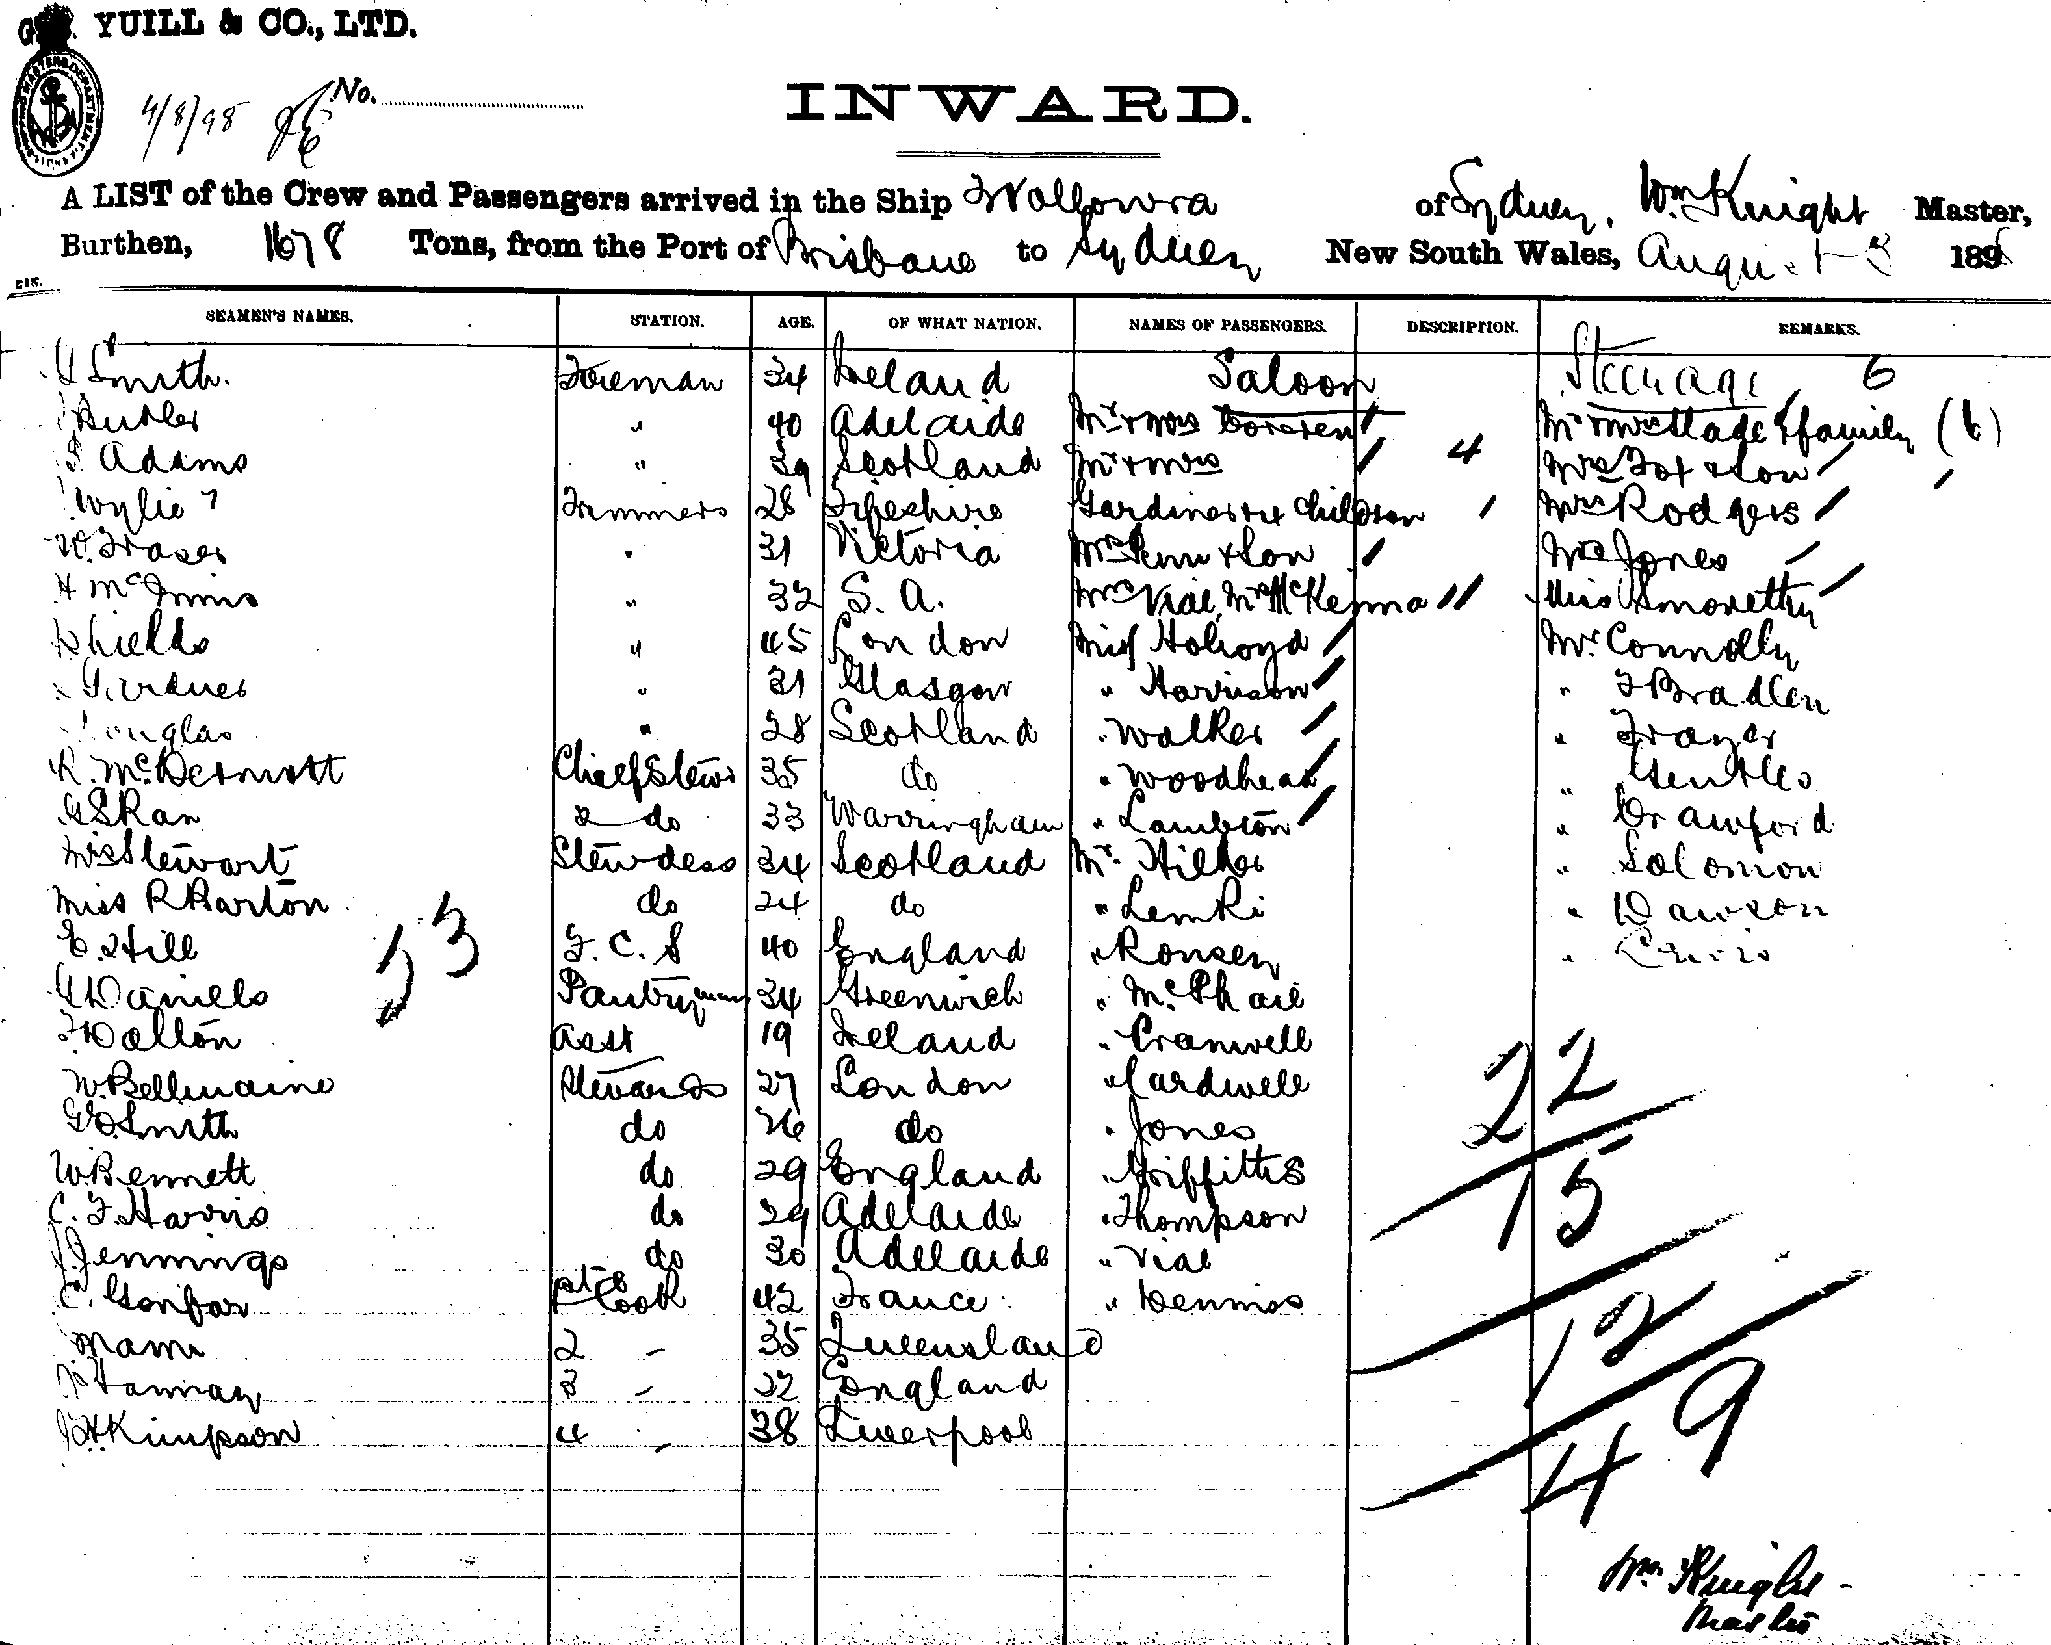 YUILL & CO., LTD.
4/8/98 No.
INWARD.
A LIST of the Crew and Passengers arrived in the Ship Wollowra of Sydney, Wm Knight Master,
Burthen, 1678 Tons, from the Port of Brisbane to Sydney New South Wales, August 3 189
SEAMEN'S NAMES. STATION. AGE. OF WHAT NATION. NAMES OF PASSENGERS. DESCRIPTION. REMARKS.
Smith. Fireman 34 Ireland Saloon Steerage 6
Butler " 40 Adelaide Mr & Mrs Mr & Mrs & family (6)
Adams " 39 Scotland Mr & Mrs 4 Mrs Fox & Son
Wylie Trimmers 28 Fifeshire Gardiner & 4 Children Mrs Rodgers
W. Fraser " 31 Victoria Mrs & Son Mrs Jones
H McInnis " 32 S. A. Mrs Vial, Mrs McKenna Miss
Shields " 45 London Miss Holroyd Mr Connolly
Gardner " 31 Glasgow " Harrison " F Bradley
Douglas " 28 Scotland " Walker " Frazer
R. McDermott Chief Stewd 35 do " Woodhead " Gentles
G Skan 2 do 33 Warringham " Lambton " Crawford
Mrs Stewart Stewdess 34 Scotland Mr. " Solomon
Miss R Barton do 24 do " Lemki " Dawson
E. Hill F. C. S 40 England " Ronsey " Lewis
53
G Daniels Pantryman 34 Greenwich " McPhail
F Dalton Asst 19 Ireland " Cramwell
W. Bellmaine Stewards 27 London " Cardwell
22
G Smith do 26 do " Jones
W Bennett do 29 England " Griffiths
15
C. F. Harris do 29 Adelaide " Thompson
J. Jennings do 30 Adelaide " Vial
C. 1st Cook 42 France " Dennis
12
Mann 2 - 35 Queensland
Hannay 3 - 22 England
Kimpson 4 - 38 Liverpool
49
Wm Knight
Master